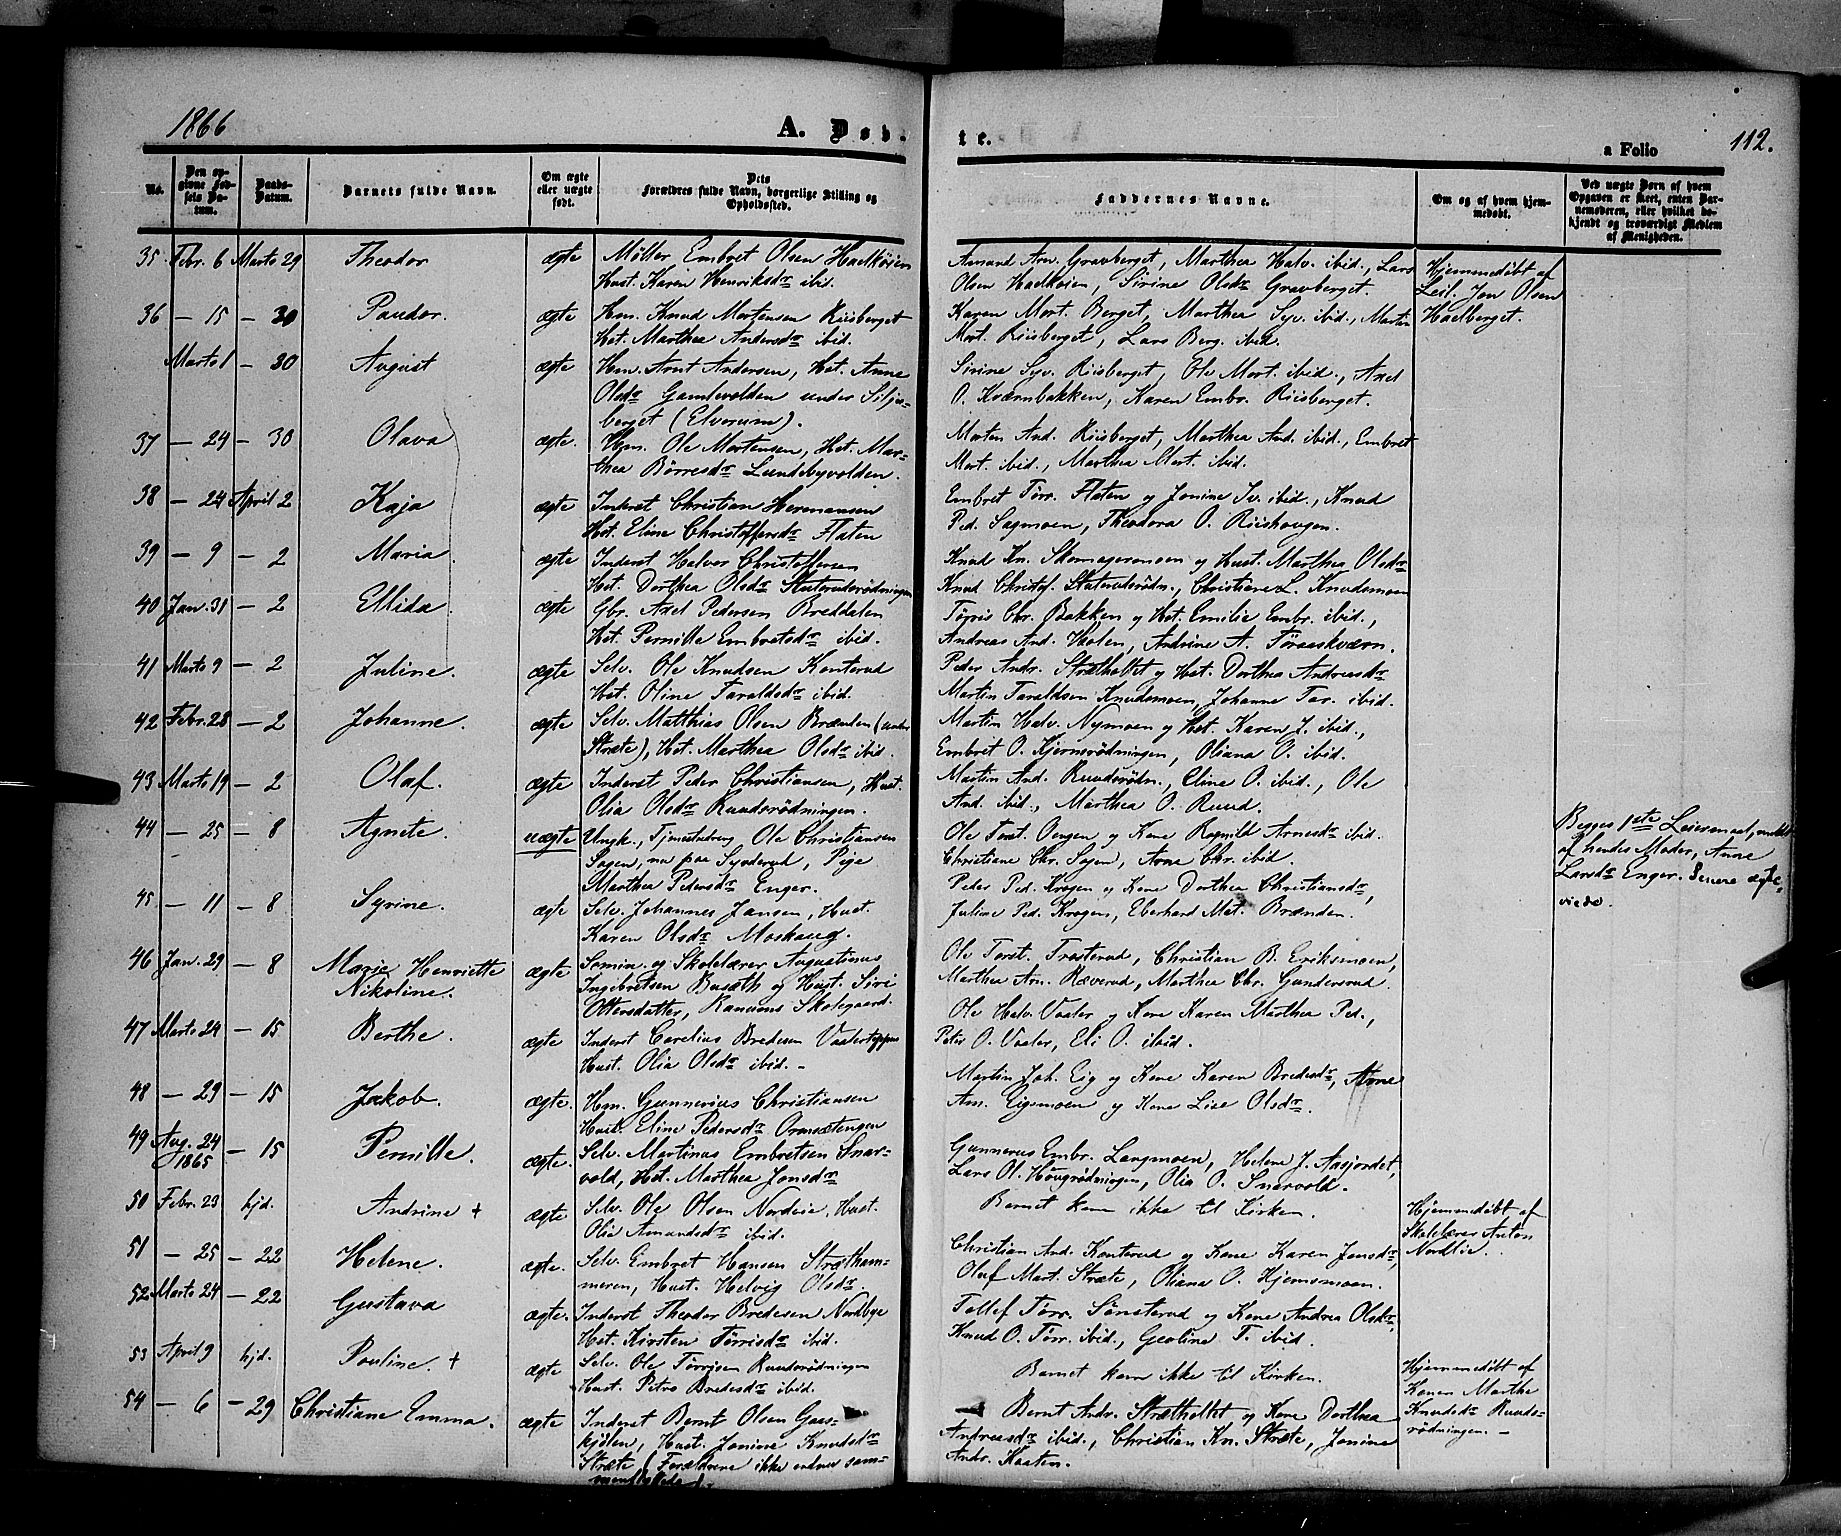 1866
A. Døb-
te.
a Folio
112.
No.
Den op-
givne Fød-
sels Da-
tum.
Daabs-
Datum.
Barnets fulde Navn.
Om ægte
eller uægte
født.
Dets
Forældres fulde Navn, borgerlige Stilling og
Opholdssted.
Faddernes Navne.
Om og af hvem hjem-
medøbt.
Ved uægte Børn af hvem
Opgaven er skeet, enten Bar-
nemoderen, eller hvilket be-
kjendt og troværdigt Medlem
af Menigheden.
35 Febr. 6 Marts 29 Theodor ægte Møller Embret Olsen Hadkøien
Hust. Karen Henriksdr ibid.
Amund Arn. Gravberget, Marthea Halv. ibid., Lars
Olsen Hadkøien, Sirine Olsdr Gravberget.
Hjemmedøbt af
Leil. Jon Olsen
Haelberget.
36 — 15 — 30 Paudor. ægte Hm. Knud Mortensen Riisberget
Hst. Marthea Andersdr ibid.
Karen Mort. Berget, Marthea Syv. ibid., Martin
Mort. Riisberget, Lars Berg. ibid.
Marts 1 — 30 August ægte Hm. Arnt Andersen, Hst. Anne
Olsdr Gamlevolden under Silju-
berget (Elverum).
Sirine Syv. Riisberget, Ole Mort. ibid., Axel
O. Kværnbakken, Karen Embr. Riisberget.
37 — 24 — 30 Olava ægte. Hm. Ole Mortensen, Hst. Mar-
thea Børresdr Lundebyvolden.
Morten And. Riisberget, Marthea And. ibid., Embret
Mort. ibid., Marthea Mort. ibid.
38 — 24 April 2 Kaja ægte Inderst Christian Hermansen
Hst. Eline Christoffersdr Flaten
Embret Tørr. Flaten og Jonine Iv. ibid., Knud
Ped. Sagmoen, Theodora O. Riishaugen.
39 — 9 — 2 Maria ægte Inderst Halvor Christoffersen
Hst. Dorthea Olsdr Stuterudsrødningen
Knud Kn. Skomagermoen og Hust. Marthea Olsdr
Knud Christof. Stuterudsrødn., Christiane L. Knudsmoen
40 Jan. 31 — 2 Ellida ægte Gbr. Axel Pedersen Breddalen
Hst. Pernille Embretsdr ibid.
Tøris Chr. Bakken og Hst. Emilie Embr. ibid.,
Andreas And. Holen, Andrine A. Tøraaskværn.
41 Marts 9 — 2 Juline. ægte Selv. Ole Knudsen Konterud
Hst. Oline Taraldsdr ibid.
Peder Andr. Strætholtet og Hst. Dorthea Andreasdr
Martin Taraldsen Knudsmoen, Johanne Tar. ibid.
42 Febr. 28 — 2 Johanne. ægte Selv. Matthias Olsen Brænden (under
Stræte), Hst. Marthea Olsdr ibid.
Martin Halv. Nymoen og Hst. Karen J. ibid.,
Embret O. Kjernsrødningen, Oliana O. ibid.
43 Marts 19 — 2 Olaf. ægte Inderst Peder Christiansen, Hust.
Olia Olsdr Ruudsrødningen.
Martin And. Ruudsrødn., Eline O. ibid., Ole
And. ibid., Marthea O. Ruud.
44 — 25 — 8 Agnete. uægte Ungk., Tjenestedreng Ole Christiansen
Sagen, nu paa Synderud, Pige
Marthea Pedersdr Enger.
Ole Torst. Oengen og Kone Ragnild Arnesdr ibid.
Christiane Chr. Sagen, Arne Chr. ibid.
Begges 1ste Leiersmaal, meldt
af hendes Moder, Anne
Larsdr Enger. Senere ægte-
viede.
45 — 11 — 8 Syrine. ægte Selv. Johannes Jansen, Hust.
Karen Olsdr Moshaug.
Peder Ped. Krogen og Kone Dorthea Christiansdr,
Juline Ped. Krogen, Eberhard Mat. Brænden.
46 Jan. 29 — 8 Marie Henriette
Nikoline. ægte Semin. og Skolelærer Augustinus
Ingebretsen Busæth og Hust. Siri
Ottersdatter, Ranums Skolegaard.
Ole Torst. Trøsterud, Christian B. Eriksmoen,
Marthea Arn. Ræverud, Marthea Chr. Gundersrud.
47 Marts 24 — 15 Berthe. ægte Inderst Carelius Bredesen Vaalertoppen
Hust. Olia Olsdr ibid. —
Ole Halv. Vaaler og Kone Karen Marthea Ped.,
Peter O. Vaaler, Eli O. ibid.
48 — 29 — 15 Jakob. ægte. Hm. Gunnerius Christiansen
Hust. Eline Pedersdr Ormsætengen
Martin Joh. Eig og Kone Karen Bredesdr, Arne
Am. Eigsmoen og Kone Lise Olsdr.
49 Aug. 24
1865 — 15 Pernille. ægte. Selv. Martinus Embretsen Snar-
vold, Hst. Marthea Jonsdr
Gunnerus Embr. Langmoen, Helene J. Aasjordet,
Lars Ol. Haugrødningen, Olia O. Snarvold.
50 Febr. 23 hjd. Andrine + ægte Selv. Ole Olsen Nordlie, Hust.
Olia Amundsdr ibid.
Barnet kom ikke til Kirken.
Hjemmedøbt af
Skolelærer Anton
Nordlie.
51 — 25 — 22 Helene. ægte. Selv. Embret Hansen Strætham-
meren, Hust. Helvig Olsdr
Christian And. Konterud og Kone Karen Jonsdr,
Oluf Mart. Stræte, Oliana O. Hjemsmoen.
52 Marts 24 — 22 Gustava ægte. Inderst Theodor Bredesen Nordbye
Hst. Kirsten Tørrisdr ibid.
Tollef Tørr. Sønsterud og Kone Andrea Olsdr,
Knud O. Tørr. ibid., Geoline T. ibid.
53 April 9 hjd. Pauline. + ægte Selv. Ole Tørrisen Ruudsrødningen
Hust. Petra Bredesdr ibid.
Barnet kom ikke til Kirken.
Hjemmedøbt af
Konen Marthe
Knudsdr Ruuds-
rødningen. —
54 — 6 — 29 Christiane Emma. ægte Inderst Bernt Olsen Gaas-
kjølen, Hust. Jonine Knudsdr
Stræte (Forældrene ikke endnu sam-
Bernt Andr. Strætholtet og Kone Dorthea
Andreasdr ibid., Christian Kn. Stræte, Jonine
Andr. Kaaten.